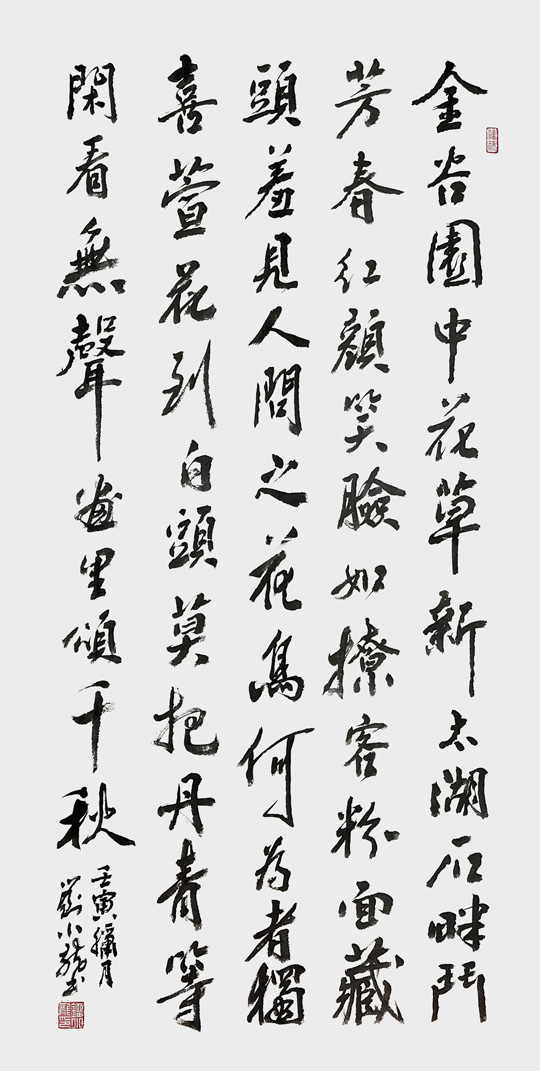 金谷園中花草新太湖石畔鬥
芳春紅顏笑臉如撩客粉面藏
頭羞見人問之花鳥何為者獨
喜萱花到白頭莫把丹青等
閑看無聲畫里頌千秋
壬寅臘月
劉小龍書